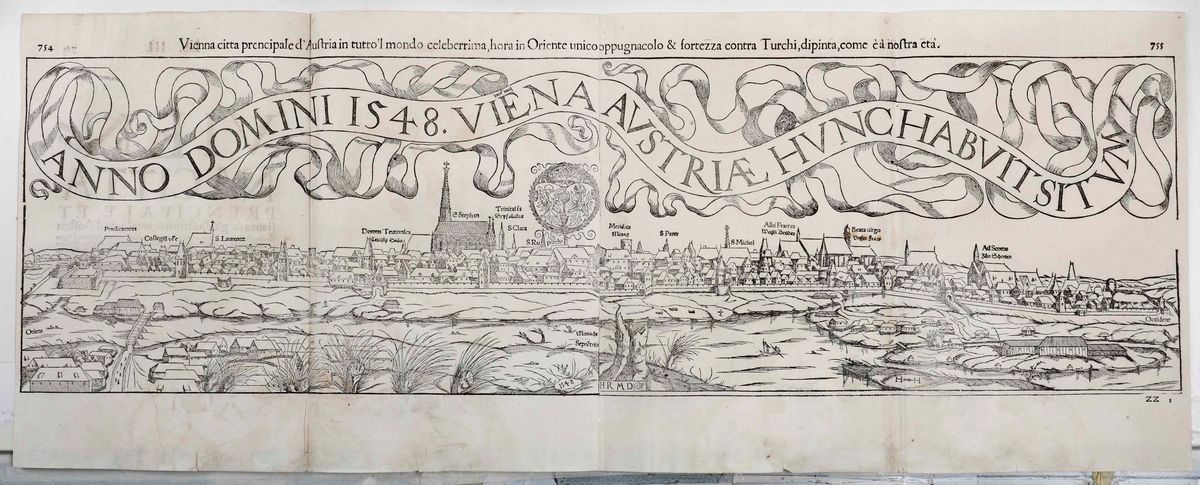 754
Vienna citta prencipale d'Austria in tutto'l mondo celeberrima, hora in Oriente unico oppugnacolo & fortezza contra Turchi, dipinta, come è à nostra età.
755
ANNO DOMINI 1548. VIĒNA AVSTRIÆ HVNC HABVIT SITVM
Predicatores
S. Laurentz
Domus Teutonica
S. Stephan
Trinitatis
S. Clara
S. Peter
S. Michel
Albi Fratres
Beata uirgo
Ad Scotos
Oriens
Occident
Septentrio
1548
HRMD
H H
ZZ 1
PRINCIPALE ET